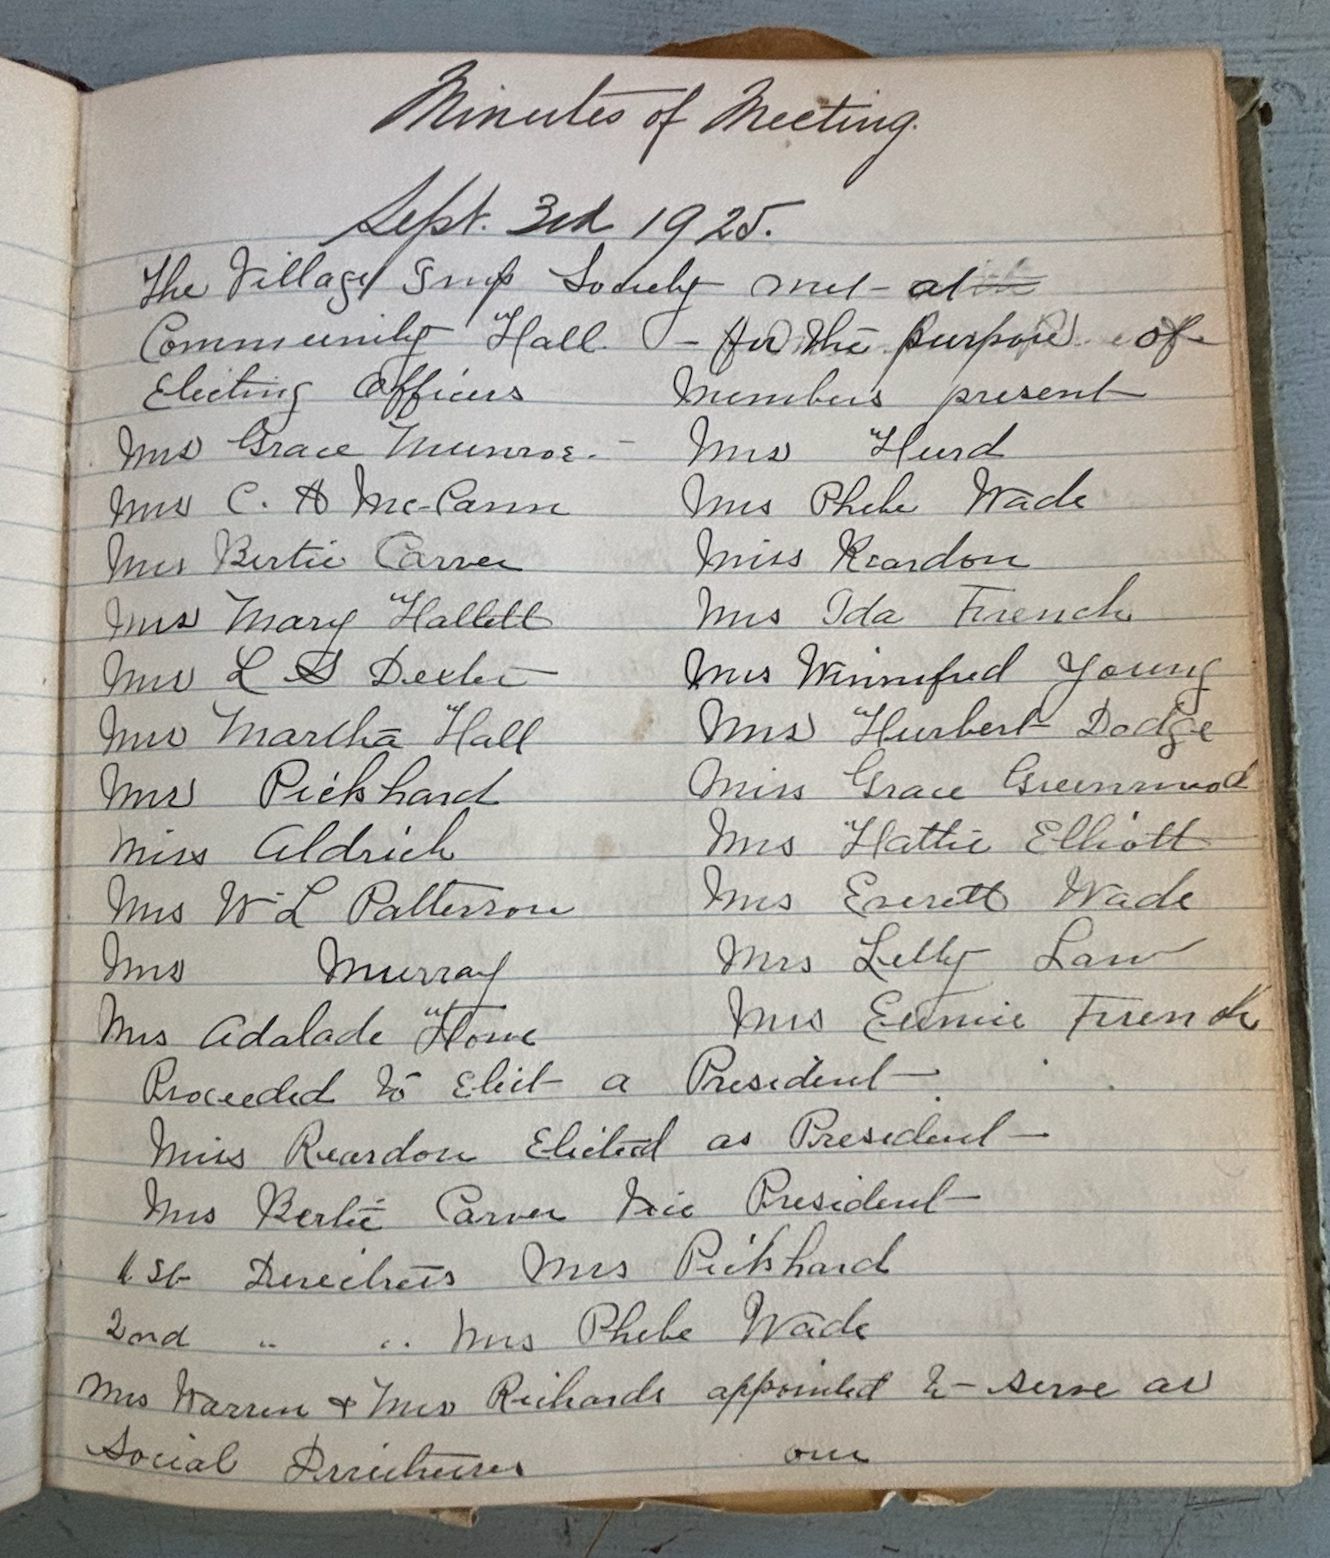 Minutes of Meeting.
Sept. 3rd 1925.
The Village Imp Society met - at
Community Hall - for the purpose of
Electing Officers Members present
Mrs Grace Munroe - Mrs Hurd
Mrs C. A McCann Mrs Phebe Wade
Mrs Bertie Carver Miss Reardon
Mrs Mary Hallett Mrs Ida French
Mrs L S Dexter Mrs Winnifred Young
Mrs Martha Hall Mrs Hurbert Dodge
Mrs Pickhard Miss Grace Greenwood
Miss Aldrich Mrs Hattie Elliott
Mrs W L Patterson Mrs Everett Wade
Mrs Murray Mrs Law
Mrs Adalade Howe Mrs Eunice French
Proceeded to Elect a President
Miss Reardon Elected as President
Mrs Bertie Carver Vice President
1st Directress Mrs Pickhard
2nd " " Mrs Phebe Wade
Mrs Warren & Mrs Richards appointed to serve as
Social Directresses our